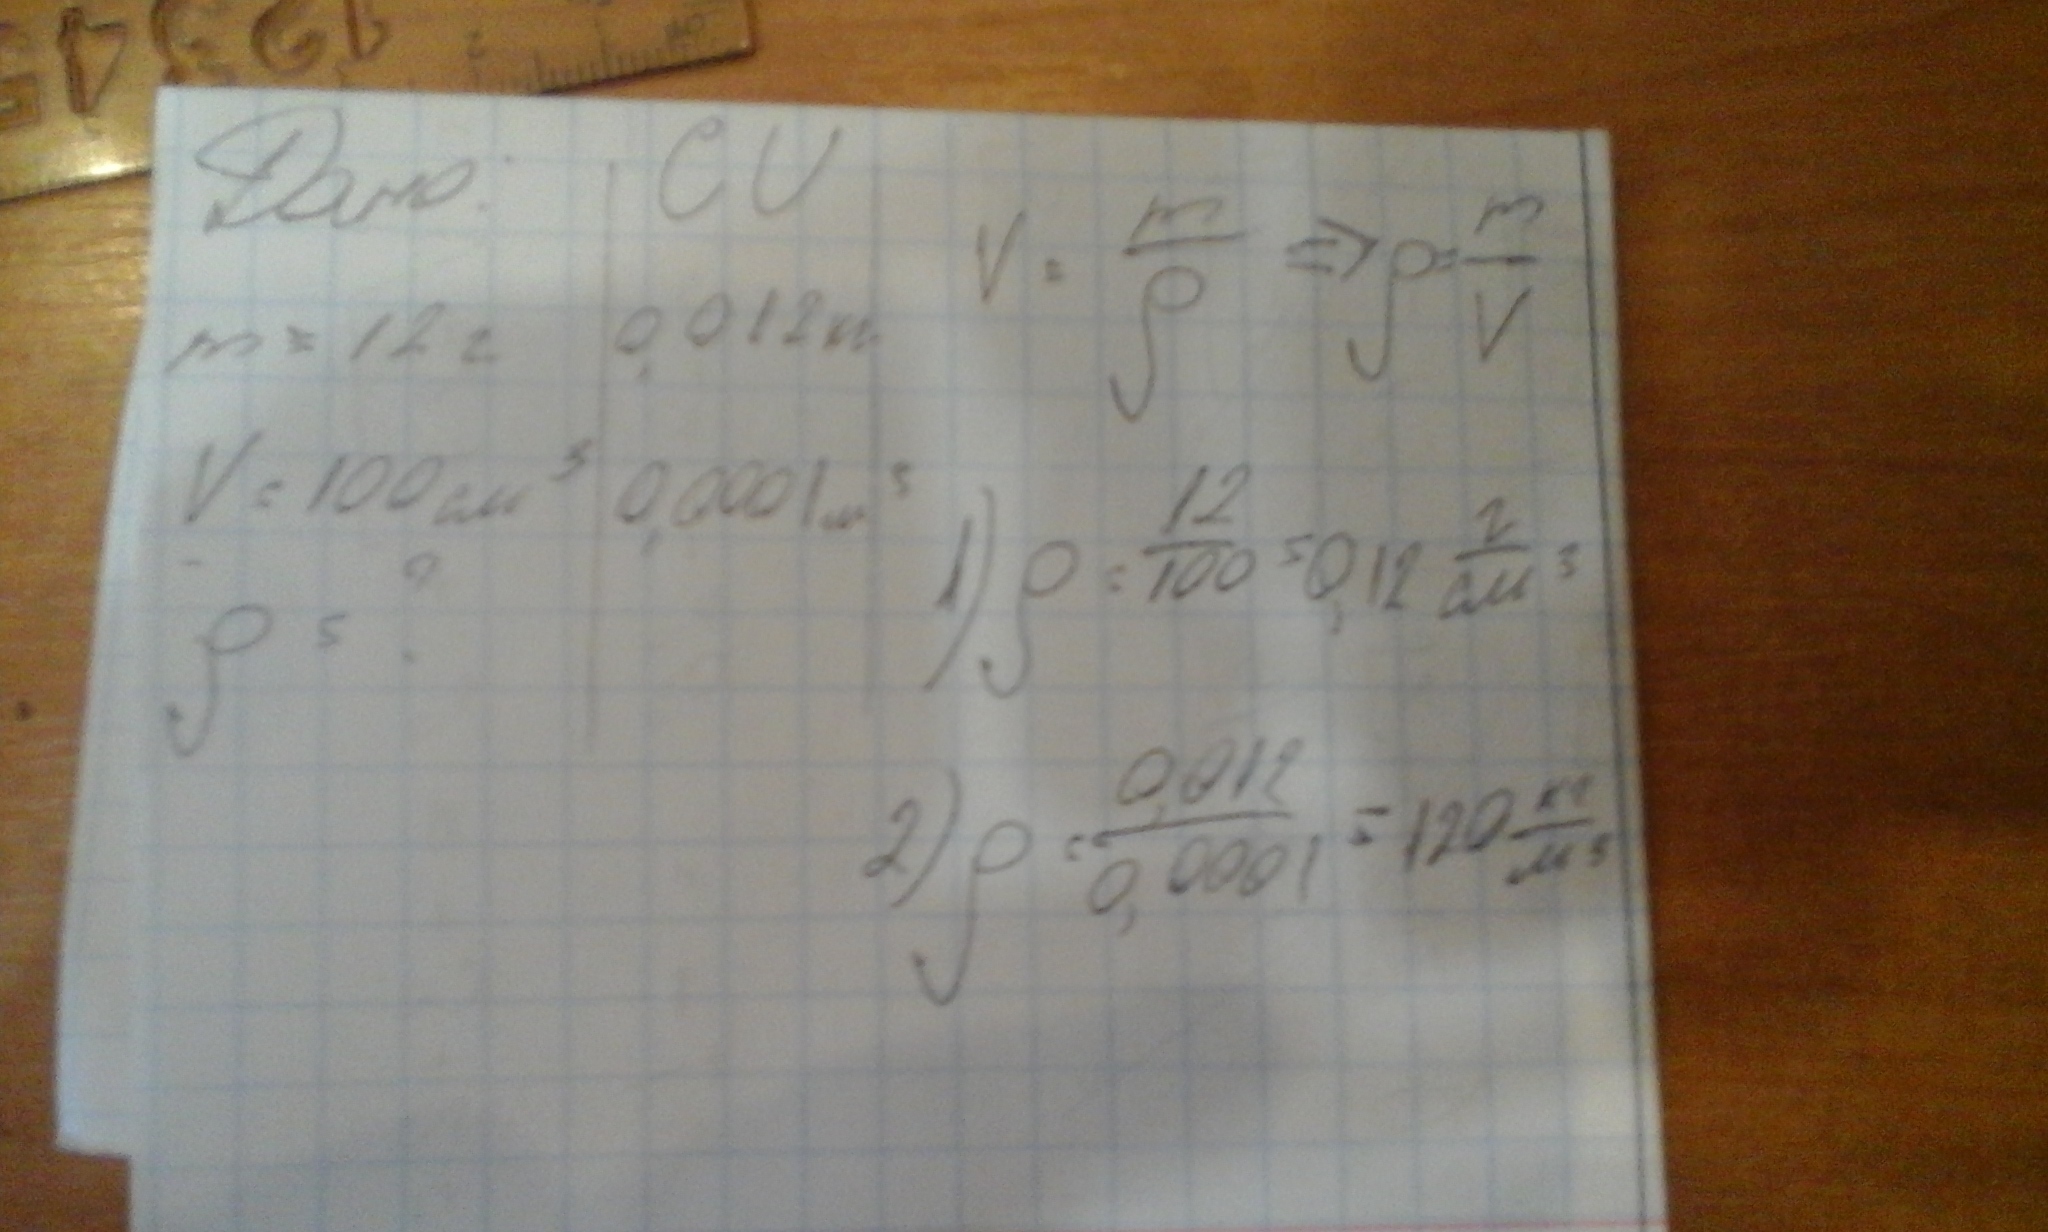 Дано: СИ
m = 12 г 0,012 кг
V = 100 см³ 0,0001 м³
ρ = ?
V = m/ρ => ρ = m/V
1) ρ = 12/100 = 0,12 г/см³
2) ρ = 0,012/0,0001 = 120 кг/м³